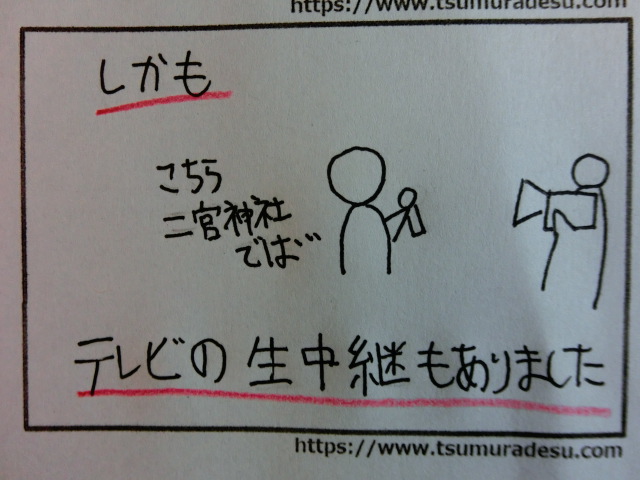 https://www.tsumuradesu.com
しかも
こちら
二宮神社
では゛
テレビの生中継もありました
https://www.tsumuradesu.com